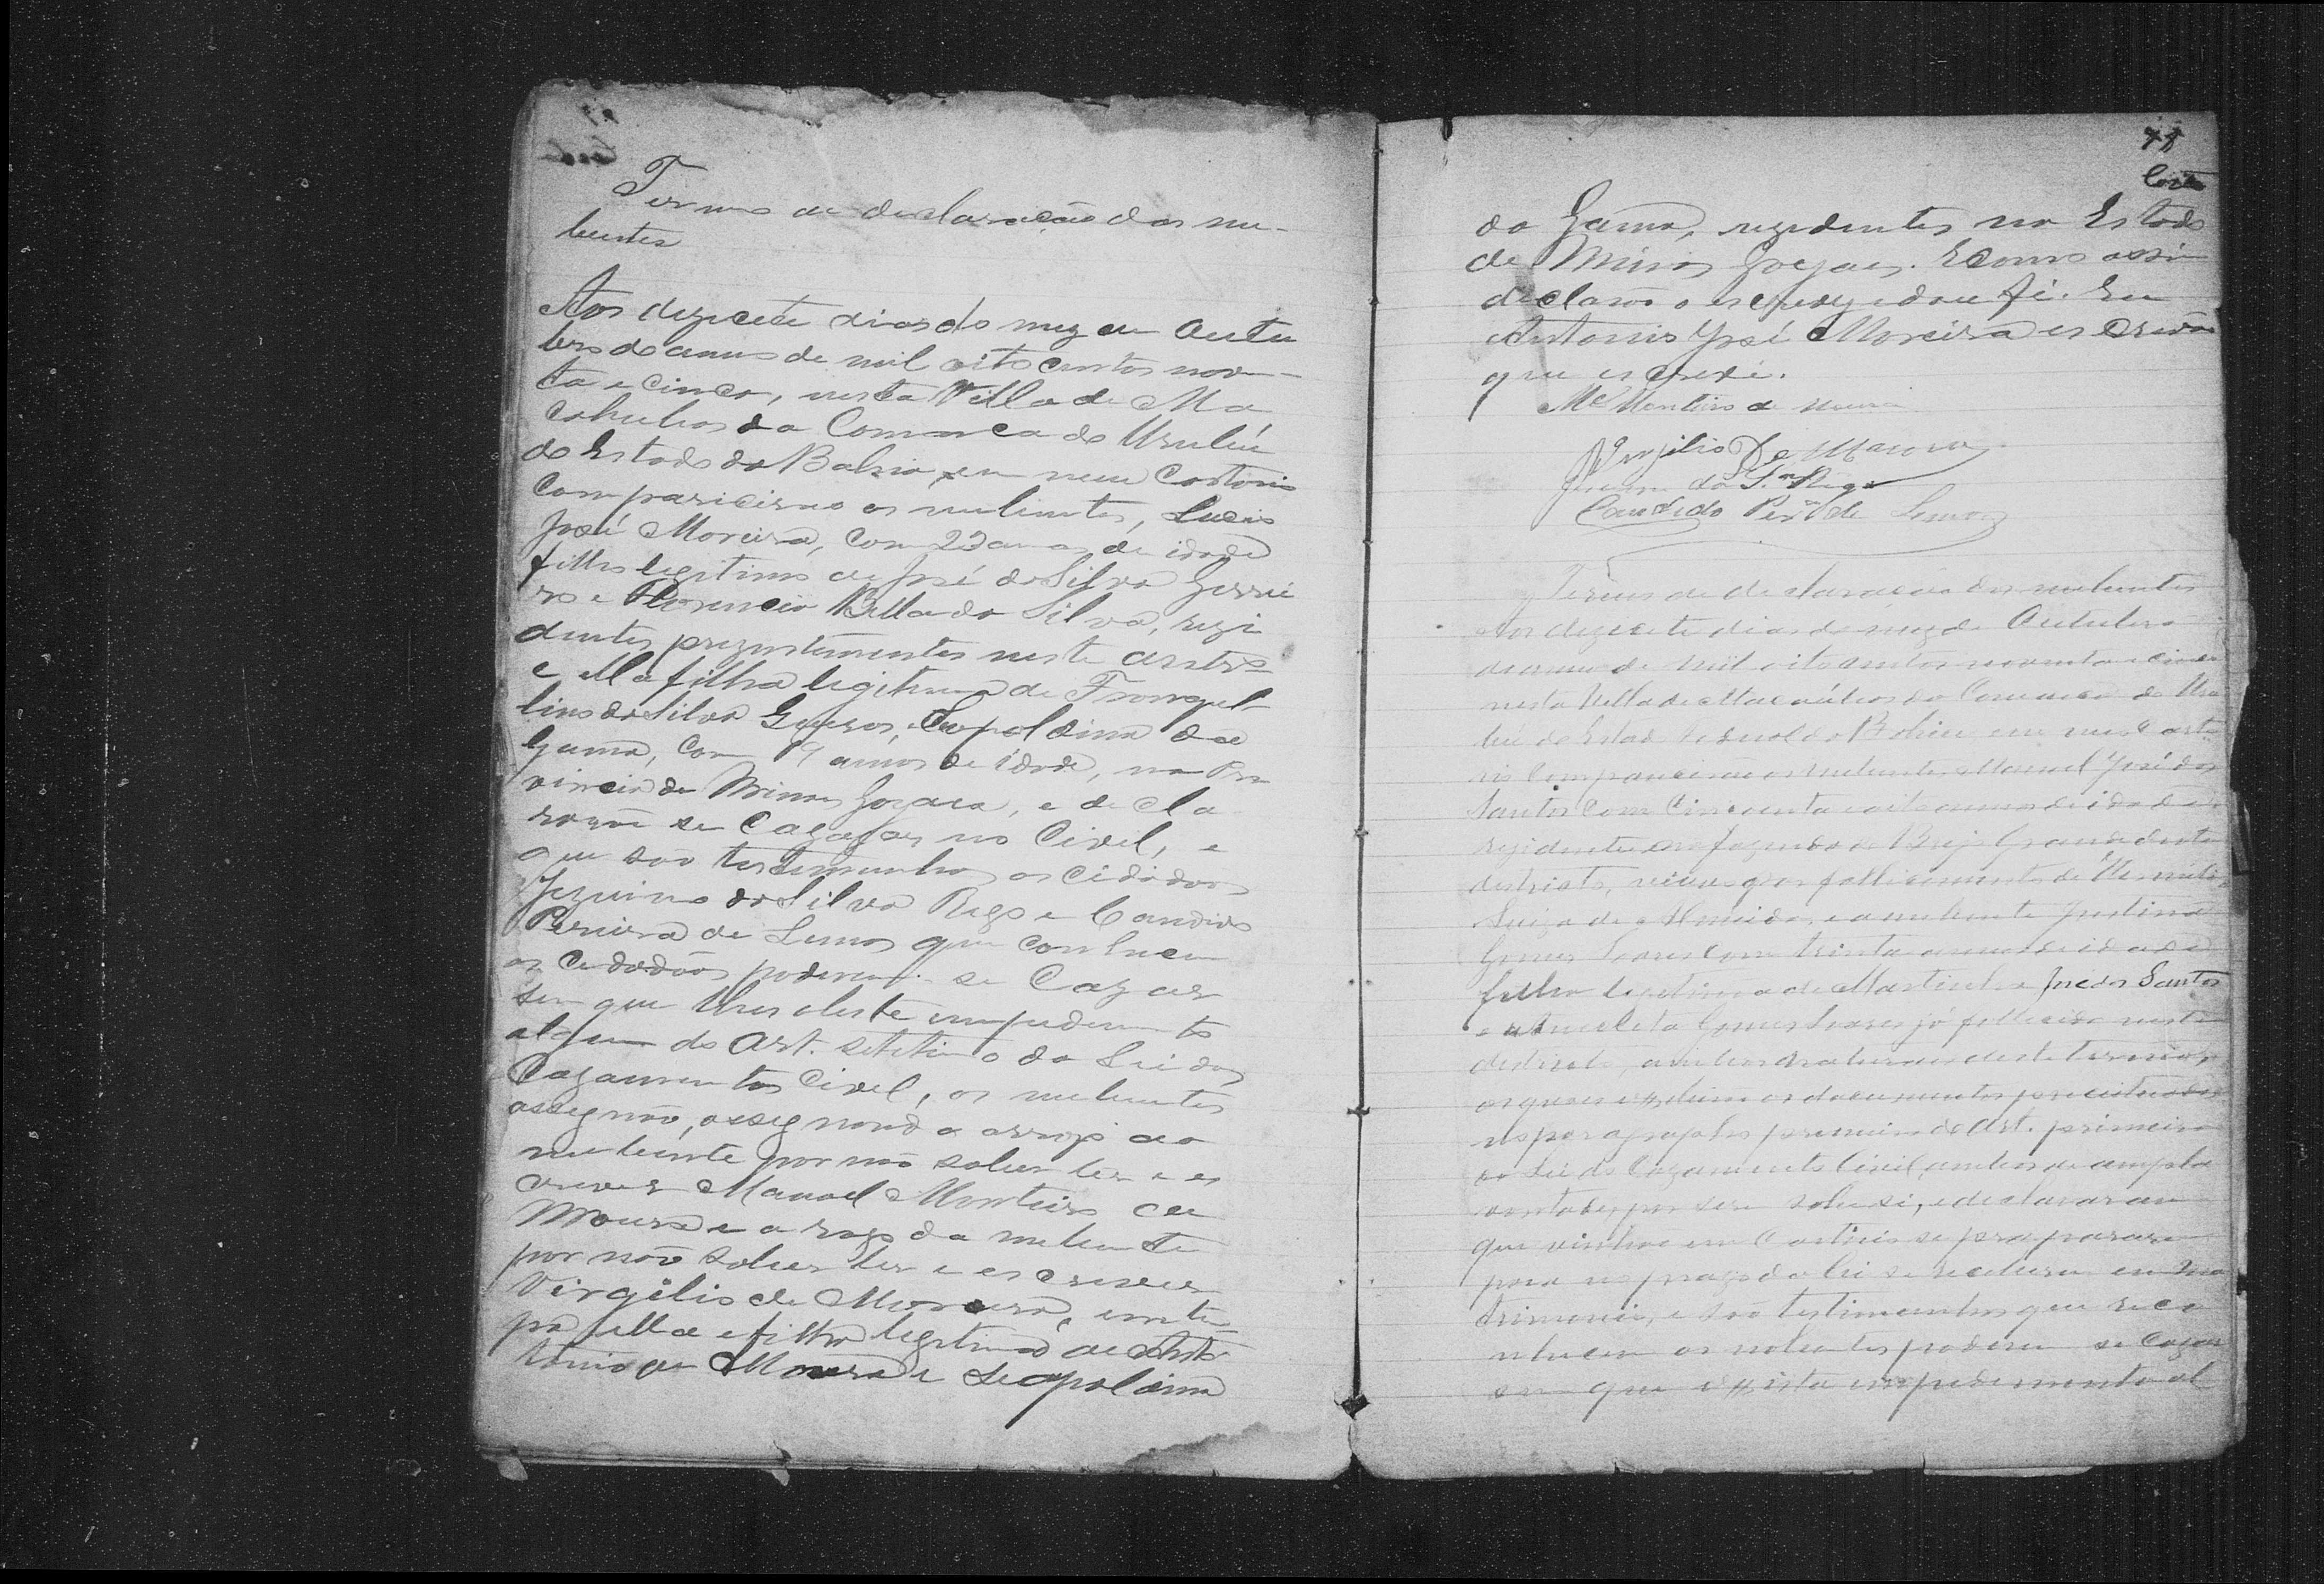 Termo de declaração dos nu-
bentes
Aos dezecete dias do mez de Outu
bro do anno de mil oito centos noven-
ta e cinco, nesta Villa de Ma
cahubas da Comarca do Urubú
do Estado da Bahia, em meu Cartorio
Comparicirão os nubentes, Lucio
José Moreira, com 23 annos de idade
filho legitimo de José da Silva
e Florencia Bella da Silva, rezi
dentes prezentimentes neste
e ella filha legitima de
lino da Silva, Leopoldina da
Gama, com 19 annos de idade, na Pro
vincia de Minas Geraes, e decla
rarão se Cazarem no Civel, e
que são testemunhas os cidadãos
Jezuino da Silva Rego e Candido
Pereira de Lemos que conhecem
os Cedadãos poderem se Cazar
sem que lhes obste empedimento
algum do Art. setetimo da Lei dos
Cazamentos Civel, os nubentes
assignão, assignando a arrogo do
nubente por não saber ler e es
crever Manoel Monteiro de
Moura e a rogo da nubente
por não saber ler e escrever
Virgilio de Moura, em tem
po ella e filha legitima de Anto
nio de Moura e Leopoldina
da Gama, rezidentes no Estado
de Minas Geraes. E como assim
declarão o escrevy e dou fé. Eu
Antonio José Moreira escrivão
que escrevi.
Mel Monteiro de Moura
Virgilio De Moura
da Sa Rego
Candido Pera de Lemos
Termo de declaração dos nubentes
Aos dezecete dias do mez de Outubro
do anno de mil oito centos noventa e cinco
nesta Villa de Macaúbas da Comarca do Uru
bú do Estado Federal da Bahia em meu Carto
rio Compareicirão os nubentes Manoel José dos
Santos com Cincoenta e oito annos de idade
rezidente na fazenda do Brejo Grande deste
destricto, viuvo por fallicimento de
Luiza de Almeida, e a nubente Justina
Gomes Soares com trinta annos de idade
filha legitima de Martinho José dos Santos
e Gomes Soares já fallicida neste
destricto, ambos naturaes deste termo,
os quaes exhibirão os documentos
no paragrapho primeiro do Art. primeiro
da Lei do Cazamento Civil, ambos de ampla
vontade, por si, e declararam
que vinhão em Cartorio se prepararem
para no prazo da lei se receberem em Ma
trimonio, e são testimunhas que reco
nhecem os nubentes poderem se Cazar
sem que exista empedimento al